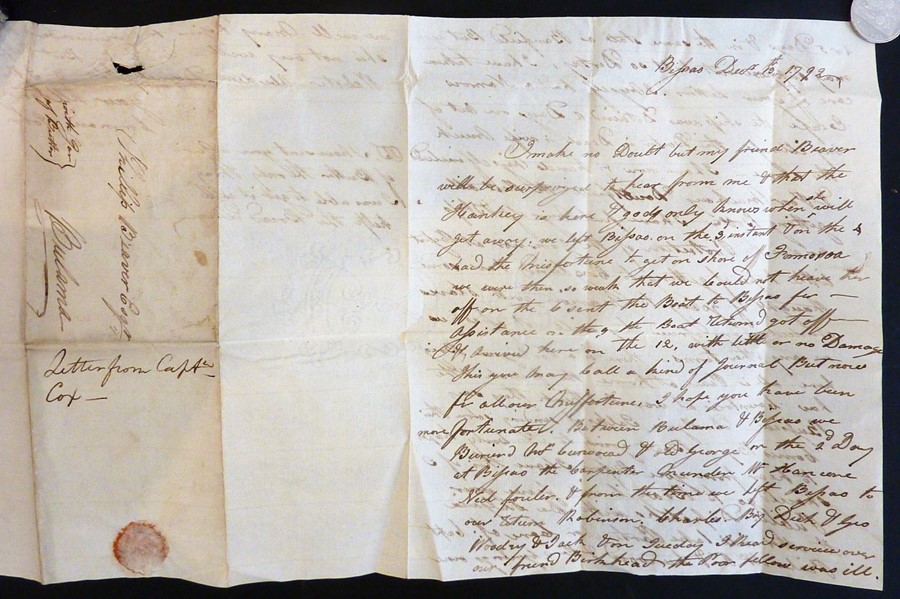 with Ten
of Butter
Phillip Beaver Esqr
Bulama
Letter from Captn
Cox —
Bissao Decr 13. 1792
I make no Doubt but my friend Beaver
will be surprized to hear from me & that the
Hankey is here & gods only knows when she will
get away. we left Bissao on the 3 instant & on the 4
had the Misfortune to get on shore of Formosa
we were then so weak that we Could not heave her
off on the 6 sent the Boat to Bissao for —
assistance on the 9 the Boat Returnd got off —
& arrived here on the 12, with little or no Damage
this you may Call a kind of Journal But now
for all our Misfortunes I hope you have been
more fortunater. Between Bulama & Bissao we
Buried Mr Curwood & Do George on the 2d Day
at Bissao the Carpenter Munden W Hancorne
Ned fowler. & from the time we left Bissao to
our Return Robinson. Charles. Big Dick & Geo
Woodry & Jack Tom Tuesday I Read service over
our friend Birkhead the Poor fellow was ill.